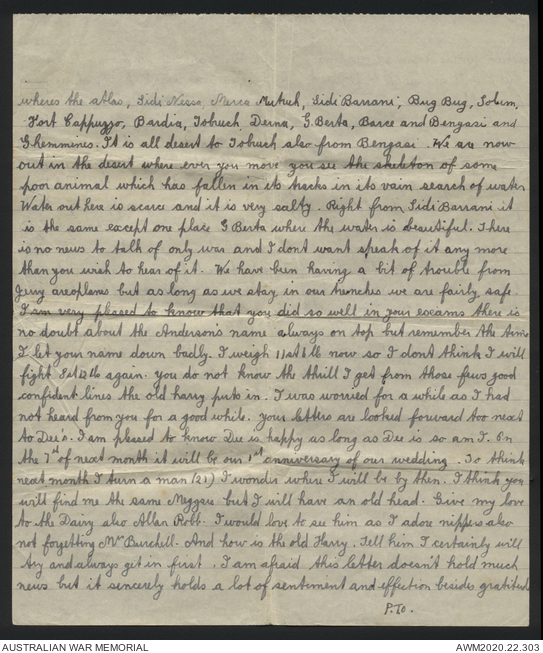 wheres the atlas, Sidi Nessa, Merca Mutruh, Sidi Barrani, Bug Bug, Solum,
Fort Cappuzzo, Bardia, Tobruch Derna, G. Berta, Barce and Bengasi and
Ghemmines. It is all desert to Tobruch also from Bengasi. We are now
out in the desert where ever you move you see the skeleton of some
poor animal which has fallen in its tracks in its vain search of water
Water out here is scarce and it is very salty. Right from Sidi Barrani it
is the same except one place G Berta where the water is beautiful. There
is no news to talk of only war and I dont want speak of it any more
than you wish to hear of it. We have been having a bit of trouble from
Jerry areoplanes but as long as we stay in our trenches we are fairly safe
I am very pleased to know that you did so well in your excams there is
no doubt about the Anderson's name always on top but remember the time
I let your name down badly. I weigh 11st 6 lb now so I dont think I will
fight again. you do not know the thrill I get from those few good
confident lines the old harry puts in. I was worried for a while as I had
not heard from you for a good while. Your letters are looked forward too next
to Dee's. I am pleased to know Dee is happy as long as Dee is so am I. On
the 7st of next month it will be our 1st anniversary of our wedding. To think
next month I turn a man (21) I wonder where I will be by then. I think you
will find me the same Meggsie but I will have an old head. Give my love
to the Dairy also Allan Robb. I would love to see him as I adore nippers also
not forgetting Mr Burchell. And how is the old Harry. Tell him I certainly will
try and always get in first. I am afraid this letter doesn't hold much
news but it sincerely holds a lot of sentement and effection besides gratitud
P.T.O.
AUSTRALIAN WAR MEMORIAL
AWM2020.22.303